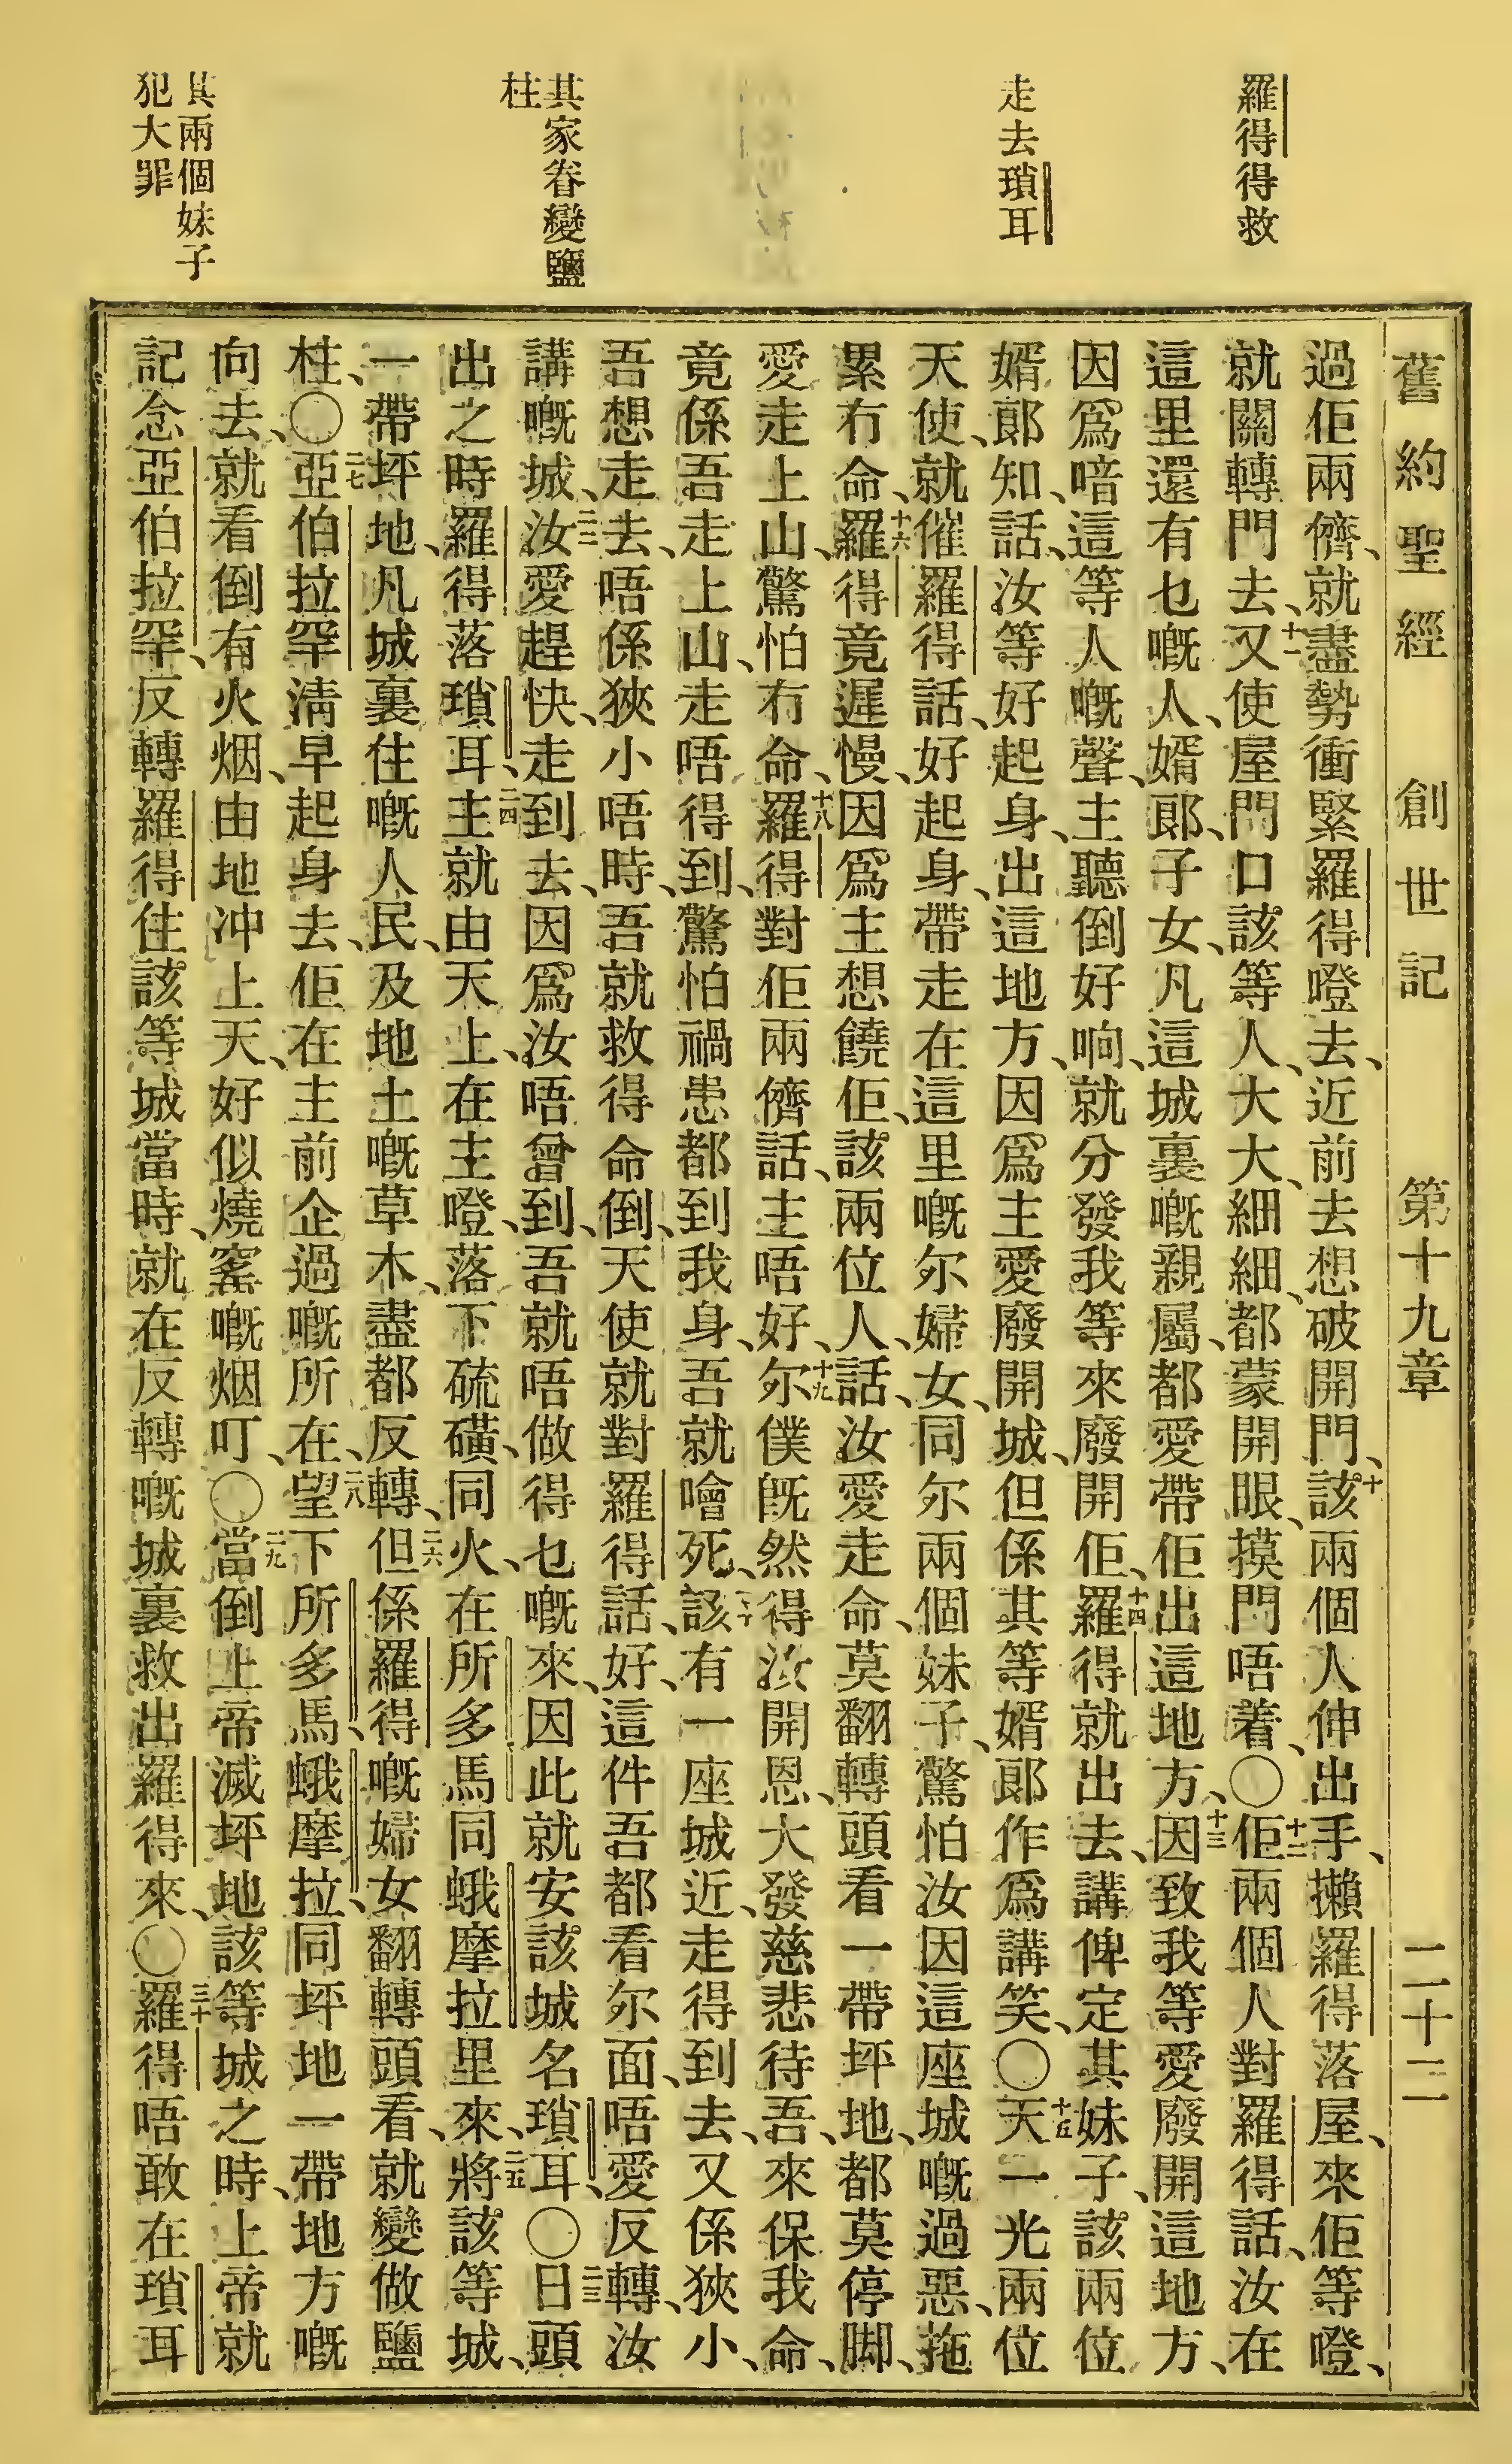 羅得得救
走去瑣耳
其家眷變鹽
柱
其兩個妹子
犯大罪
舊約聖經 創世記 第十九章 二十二
過佢兩儕、就盡勢衝緊羅得噔去、近前去想破開門、十該兩個人伸出手、攋羅得落屋、來佢等噔、
就關轉門去、十一又使屋門口該等人、大大、細細、都蒙開眼、摸門唔着、〇十二佢兩個人對羅得話、汝在
這里還有乜嘅人、婿郎、子女、凡這城裏嘅親屬、都愛帶佢出這地方、十三因致我等愛廢開這地方、
因爲喑這等人嘅聲、主聽倒好响、就分發我等來廢開佢、十四羅得就出去、講俾定其妹子、該兩位
婿郎知、話、汝等好起身、出這地方、因爲主愛廢開城、但係其等婿郎作爲講笑、〇十五天一光兩位
天使、就催羅得話、好起身、帶走在這里嘅尔婦女、同尔兩個妹子、驚怕汝因這座城嘅過惡、拖
累冇命、十六羅得竟遲慢、因爲主想饒佢、該兩位人、話、汝愛走命、莫翻轉頭看一帶坪地、都莫停脚、
愛走上山、驚怕冇命、十八羅得對佢兩儕話、主唔好、十九尔僕既然得汝開恩、大發慈悲待吾、來保我命、
竟係吾走上山、走唔得到、驚怕禍患都到我身、吾就噲死、二十該有一座城近、走得到去、又係狹小、
吾想走去、唔係狹小唔時、吾就救得命倒、天使就對羅得話、好、這件吾都看尔面、唔愛反轉、汝
講嘅城、二二汝愛趕快、走到去、因爲汝唔曾到、吾就唔做得乜嘅來、因此就安該城名瑣耳、〇二三日頭
出之時、羅得落瑣耳、二四主就由天上、在主噔、落下硫磺、同火、在所多馬同蛾摩拉里來、二五將該等城、
一帶坪地、凡城裏住嘅人民、及地土嘅草木、盡都反轉、二六但係羅得嘅婦女翻轉頭看、就變做鹽
柱、〇二七亞伯拉罕淸早起身去、佢在主前企過嘅所在、二八望下所多馬、蛾摩拉、同坪地一帶地方嘅
向去、就看倒有火烟、由地冲上天、好似燒窰嘅烟叮、〇二九當倒上帝滅坪地該等城之時、上帝就
記念亞伯拉罕、反轉羅得住該等城當時、就在反轉嘅城裏救出羅得來、〇三十羅得唔敢在瑣耳